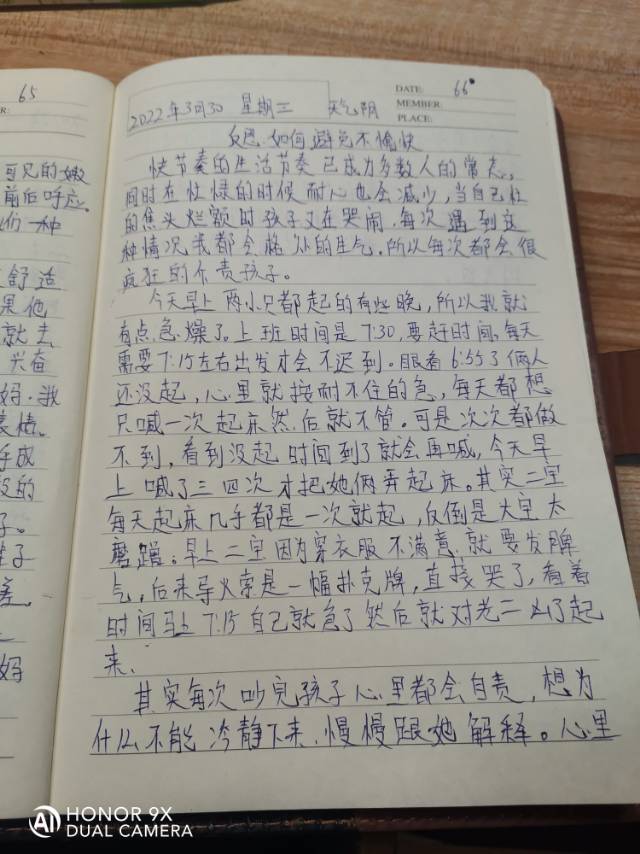 65
R:
可兄的嫩
前后呼应。
们一种
舒适
果他
就去
兴奋
妈.我
表情。
成
的
子。
差.
妈
DATE: 66
MEMBER:
PLACE:
2022年3月30 星期三 天气阴
反思:如何避免不愉快
快节奏的生活节奏已成为多数人的常态,
同时在忙碌的时候耐心也会减少,当自己忙
的焦头烂额时孩子又在哭闹.每次遇到这
种情况我都会格外的生气.所以每次都会很
疯狂的斥责孩子。
今天早上两小只都起的有些晚,所以我就
有点急燥了。上班时间是7:30,要赶时间,每天
需要7:15左右出发才会不迟到。眼看6:55了俩人
还没起,心里就按耐不住的急,每天都想
只喊一次起床然后就不管。可是次次都做
不到,看到没起时间到了就会再喊,今天早
上喊了三四次才把她俩弄起床。其实二宝
每天起床几乎都是一次就起,反倒是大宝太
磨蹭。早上二宝因为穿衣服不满意.就要发脾
气。后来导火索是一幅扑克牌,直接哭了,看着
时间马上7:15自己就急了然后就对老二凶了起
来、
其实每次吵完孩子心里都会自责,想为
什么不能冷静下来.慢慢跟她解释。心里
HONOR 9X
DUAL CAMERA